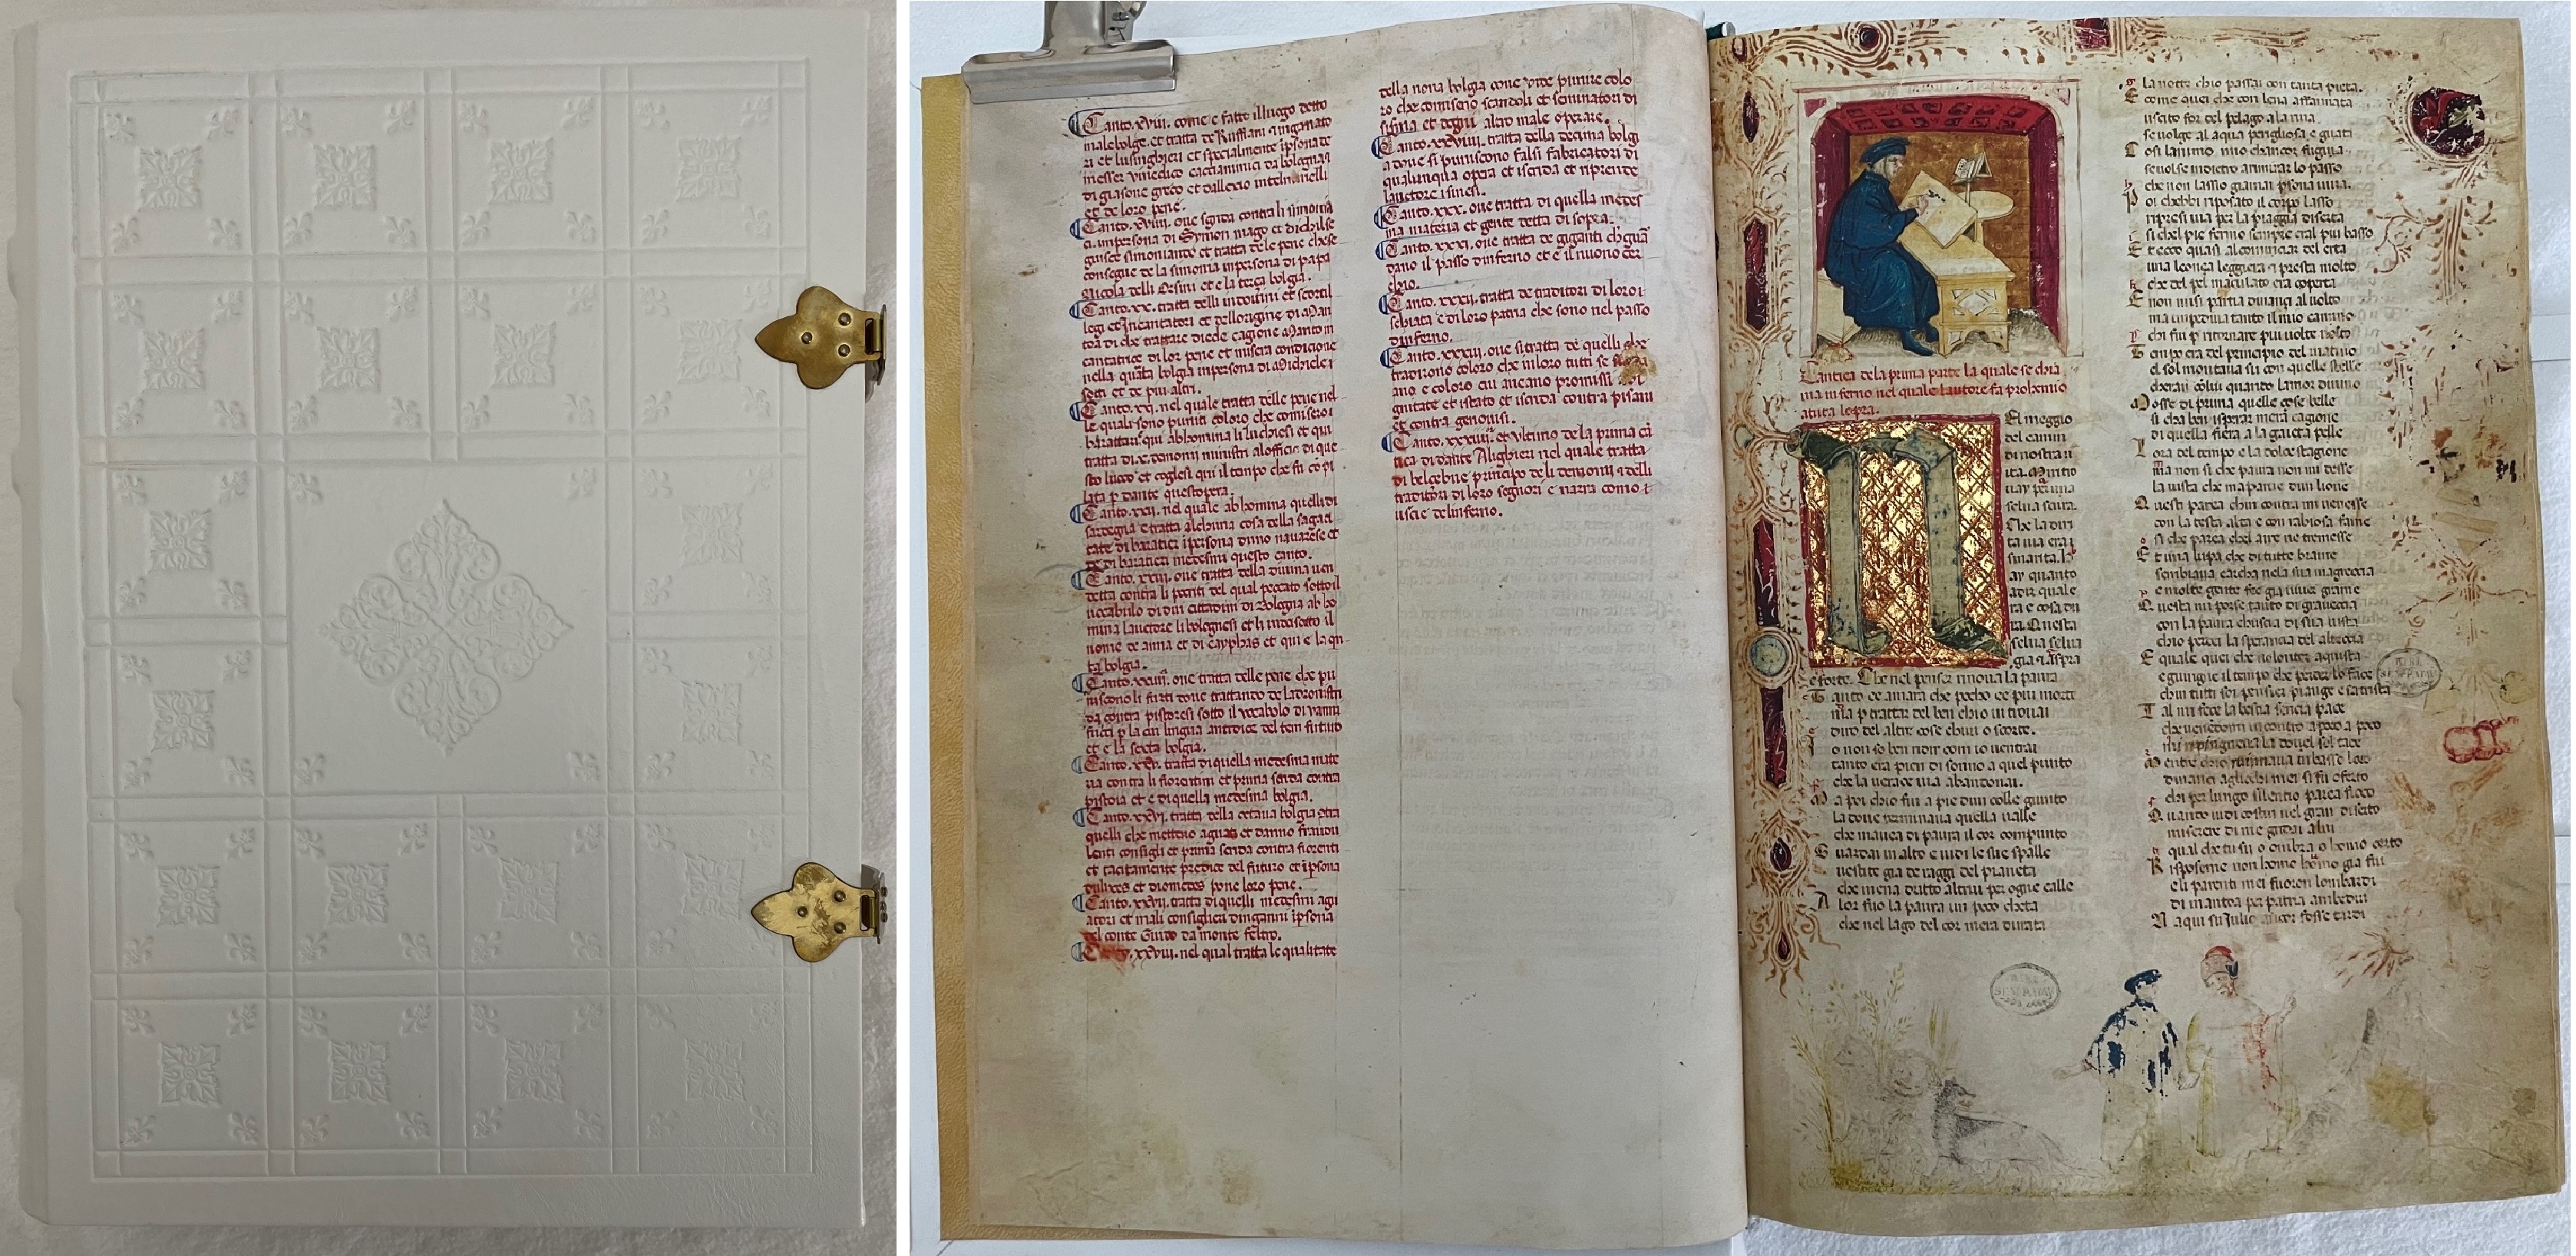 Canto. xviii. come e fatto il luogo detto
male bolge. et tratta de Ruffiani
ri et lusinghieri et specialmente
messer vinedico caccianimici da bologna
di giasone greco et
et de loro pene.
Canto. xviiii. oue sgrida contra li
in persona di Symon mago et di chi
guisce simoniando et tratta dele pene
consegue de la simonia in persona di papa
Nicola delli Orsini et e la terça bolgia.
Canto. xx. tratta delli indouini et sortil
legi et incantatori et dell origine di Man
toa di che trattare diede cagione Manto in
cantatrice di lor pene et misera condicione
nella quarta bolgia in persona di Michele i
scoti et de piu altri.
Canto. xxi. nel quale tratta delle pene nel
le quali sono puniti coloro che comiseroi
barattari. qui abhomina li luchiesi et qui
tratta di x. demonii ministri al officio di que
sto luoco et cogliesi qui il tempo che fu co pi
lata per dante quest opera.
Canto. xxii. nel quale abhomina quelli di
sardegna e tratta alchuna cosa della sagaci
tate di barattieri in persona d uno nauarese et
de di barattieri medesimi questo canto.
Canto. xxiii. oue tratta della diuina uen
detta contra li ypocriti del qual peccato sotto il
uocabulo di dui cittadini di Bologna abho
mina l auctore li bolognesi et li
nome de anna et di cayphas et qui e la
ta bolgia.
Canto. xxiiii. oue tratta delle pene che pu
niscono li furti doue trattando de ladroni
da contra pistoresi sotto il vocabolo di vanni
fucci per la cui lingua antidice del tem futuro
et e la bolgia.
Canto. xxv. tratta di quella medesma mate
ria contra li fiorentini et prima contra
pistoia et e di quella medesma bolgia.
Canto. xxvi. tratta della octaua bolgia
quelli che metteno aguati et danno fraudu
lenti consigli et prima contra fiorenti
et tacitamente predice del futuro et in persona
d ulixes et diomedes pone loro pene.
Canto. xxvii. tratta di quelli medesmi agu
atori et mali consiglieri d inganni in persona
del conte Guido da monte feltro.
xxviii. nel qual tratta le qualitate
della nona bolgia doue vide punire colo
ro che comisero scandoli et seminatori di
sisma et d ogni altro male operare.
Canto. xxviiii. tratta della decima bolgi
a doue si puniscono falsi fabricatori di
qualunqua opera et isgrida et riprende
l auctore i sinesi.
Canto. xxx. oue tratta di quella medes
ma materia et gente detta di sopra.
Canto. xxxi. oue tratta de giganti ch guar
dano il passo d inferno et e il nuono cer
chio.
Canto. xxxii. tratta de traditori di loro i
schiata e di loro patria che sono nel passo
d inferno.
Canto. xxxiii. oue si tratta de quelli che
tradirono coloro che in loro tutti se
ano e coloro cui aueano promissi
gnitate et istato et contra pisani
et contra genouisi.
Canto. xxxiiii. et ultimo de la prima can
tica di dante Alighieri nel quale tratta
di belzebue principo de li demonii e delli
traditori di loro segnori e narra como i
uscie de l inferno.
Cantica de la prima parte la quale se chia
ma inferno nel quale l autore fa prohemio
a tutta l opra.
El meggio
del camin
di nostra ui
ita. Mi ritro
uay per una
selua scura.
Che la diri
ta uia era i
smarrita. h
ay quanto
a dir quale
era e cosa du
ra. Questa
selua selua
gia et aspra
e forte. Che nel penser rinoua la paura
Tanto e amara che pocho e piu morte
ma per trattar del ben ch io ui trouai
diro del altre cose ch iui o scorte.
Io non so ben ridir com io u entrai
tanto era pien di sonno a quel punto
che la uerace uia abandonai.
Ma poi ch io fui a pie d un colle giunto
la doue terminaua quella ualle
che m auea di paura il cor compunto
Guardai in alto e uidi le sue spalle
uestite gia de raggi del pianeta
che mena dritto altrui per ogne calle
Allor fuo la paura un poco cheta
che nel lago del cor m era durata
la notte ch io passai con tanta pieta.
E come quei che con lena affannata
uscito for del pelago a la riua
se uolge al aqua perigliosa e guata
Cosi l animo mio ch ancor fugiua
se uolse indietro a rimirar lo passo
che non lasso giamai persona uiua.
Poi ch ebbi riposato il corpo lasso
ripresi uia per la piaggia diserta
si che l pie fermo sempre era l piu basso
Et ecco quasi al cominciar del erta
una leonça leggiera et presta molto
che del pel maculato era coperta
E non mi si partia dinançi al uolto
ma impediua tanto il mio camino
ch i fui per ritornare piu uolte uolto
Tempo era del principio del matino
el sol montaua su con quelle stelle
ch eran colui quando l amor diuino
Mosse di prima quelle cose belle
si ch a ben isperar m era cagione
di quella fiera a la gaieta pelle
L ora del tempo e la dolce stagione
ma non si che paura non mi desse
la uista che m aparue d un lione
Questi parea ch iui contra mi uenesse
con la testa alta e con rabiosa fame
si che parea che l aire ne tremesse
Et una lupa che di tutte brame
sembiaua carcha nela sua magreçça
e molte gente fe gia uiuer grame
Questa mi porse tanto di graueçça
con la paura ch uscia di sua uista
ch io perdei la sperança del alteçça
E quale quei che uolontier aquista
e giungie il tempo che perder lo face
ch in tutti soi pensieri piange e s atrista
Tal mi fece la bestia sença pace
che uenendomi incontro a poco a poco
mi ripingneua la doue l sol tace
Mentre ch io ruuinaua in basso loco
dinanci agli ochi mei si fu oferto
chi per lungo silentio parea fioco
Quando uidi costui nel gran diserto
miserere di me gridai a lui
qual che tu sii o ombra o homo certo
Rispose me non homo homo gia fui
e li parenti mei furon lombardi
di mantoa per patria ambedui
Naqui sub iulio ancor fosse tardi